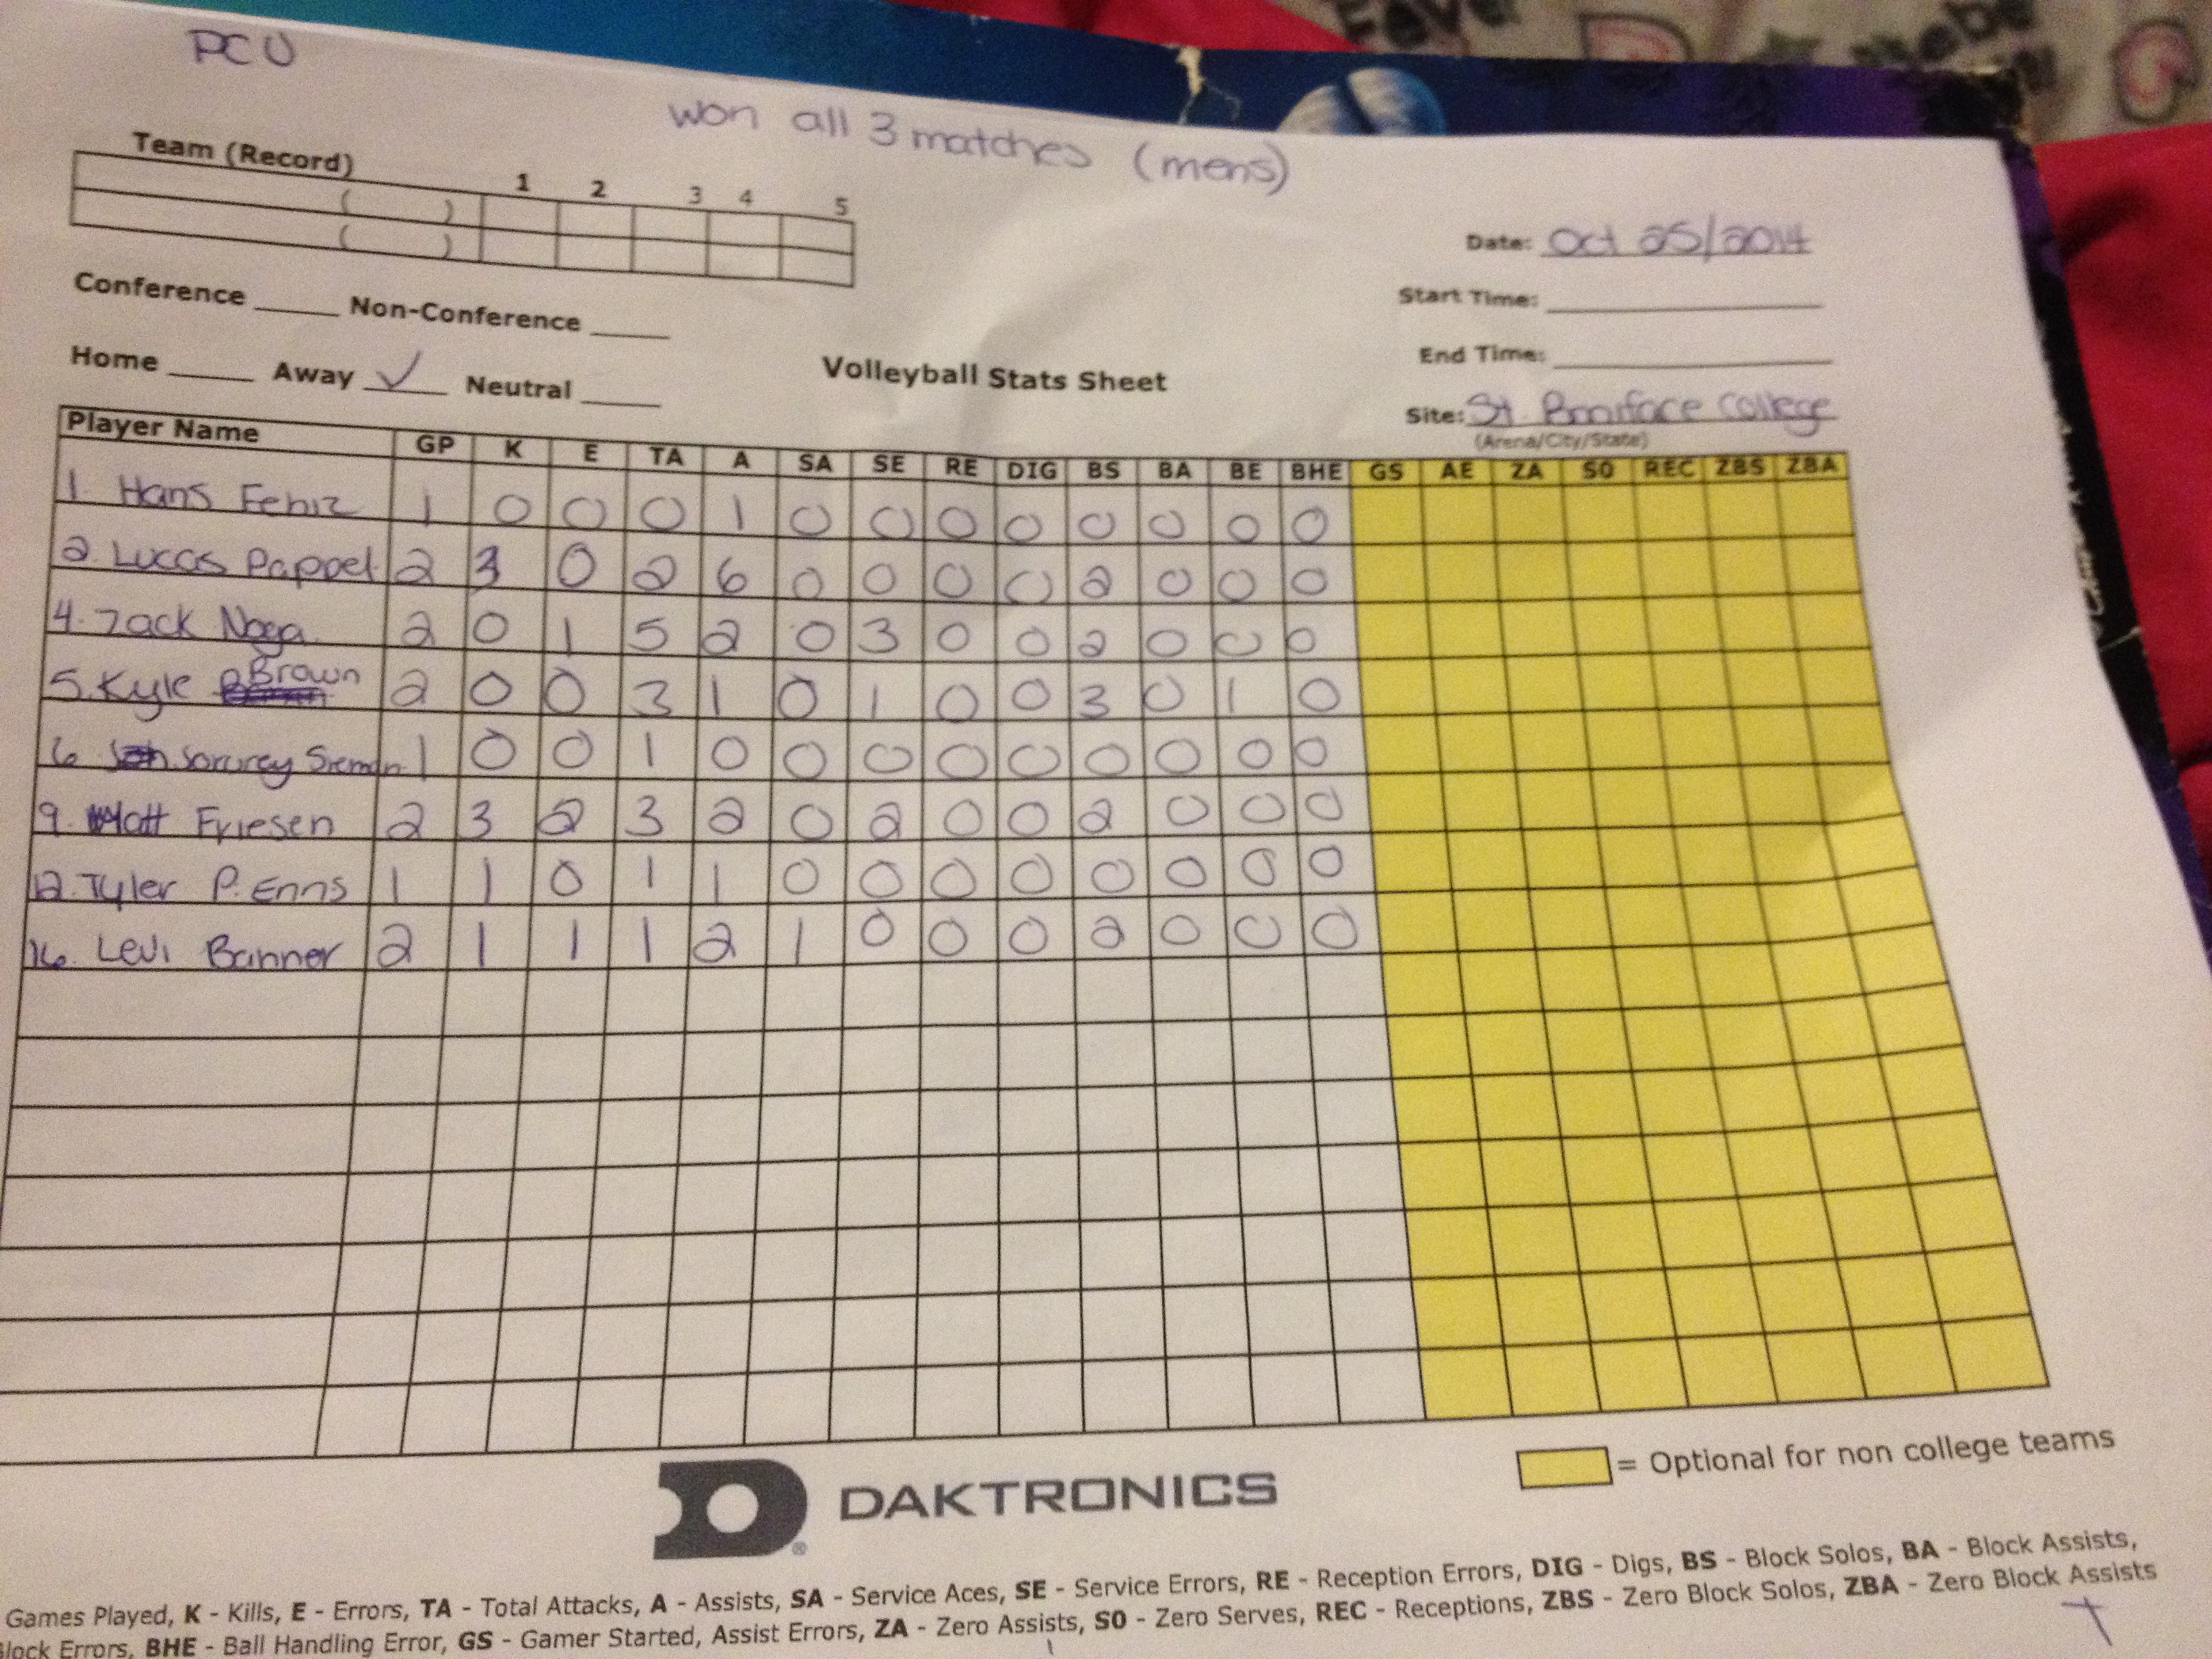 PCU
won all 3 matches (mens)
Team (Record)
1 2 3 4 5
( )
( )
Date: Oct 25/2014
Start Time:
End Time:
Conference Non-Conference
Home Away ✓ Neutral
Volleyball Stats Sheet
Site: St. Boniface College
(Arena/City/State)
Player Name GP K E TA A SA SE RE DIG BS BA BE BHE GS AE ZA SO REC ZBS ZBA
1. Hans 1 0 0 0 1 0 0 0 0 0 0 0 0
2. Lucas Pappel 2 3 0 2 6 0 0 0 0 2 0 0 0
4. Zack Naga 2 0 1 5 2 0 3 0 0 2 0 0 0
5. Kyle Brown 2 0 0 3 1 0 1 0 0 3 0 1 0
6. 1 0 0 1 0 0 0 0 0 0 0 0 0
9. Matt Friesen 2 3 2 3 2 0 2 0 0 2 0 0 0
12. Tyler P. Enns 1 1 0 1 1 0 0 0 0 0 0 0 0
16. Levi Banner 2 1 1 1 2 1 0 0 0 2 0 0 0
= Optional for non college teams
DAKTRONICS
Games Played, K - Kills, E - Errors, TA - Total Attacks, A - Assists, SA - Service Aces, SE - Service Errors, RE - Reception Errors, DIG - Digs, BS - Block Solos, BA - Block Assists,
Block Errors, BHE - Ball Handling Error, GS - Gamer Started, Assist Errors, ZA - Zero Assists, SO - Zero Serves, REC - Receptions, ZBS - Zero Block Solos, ZBA - Zero Block Assists